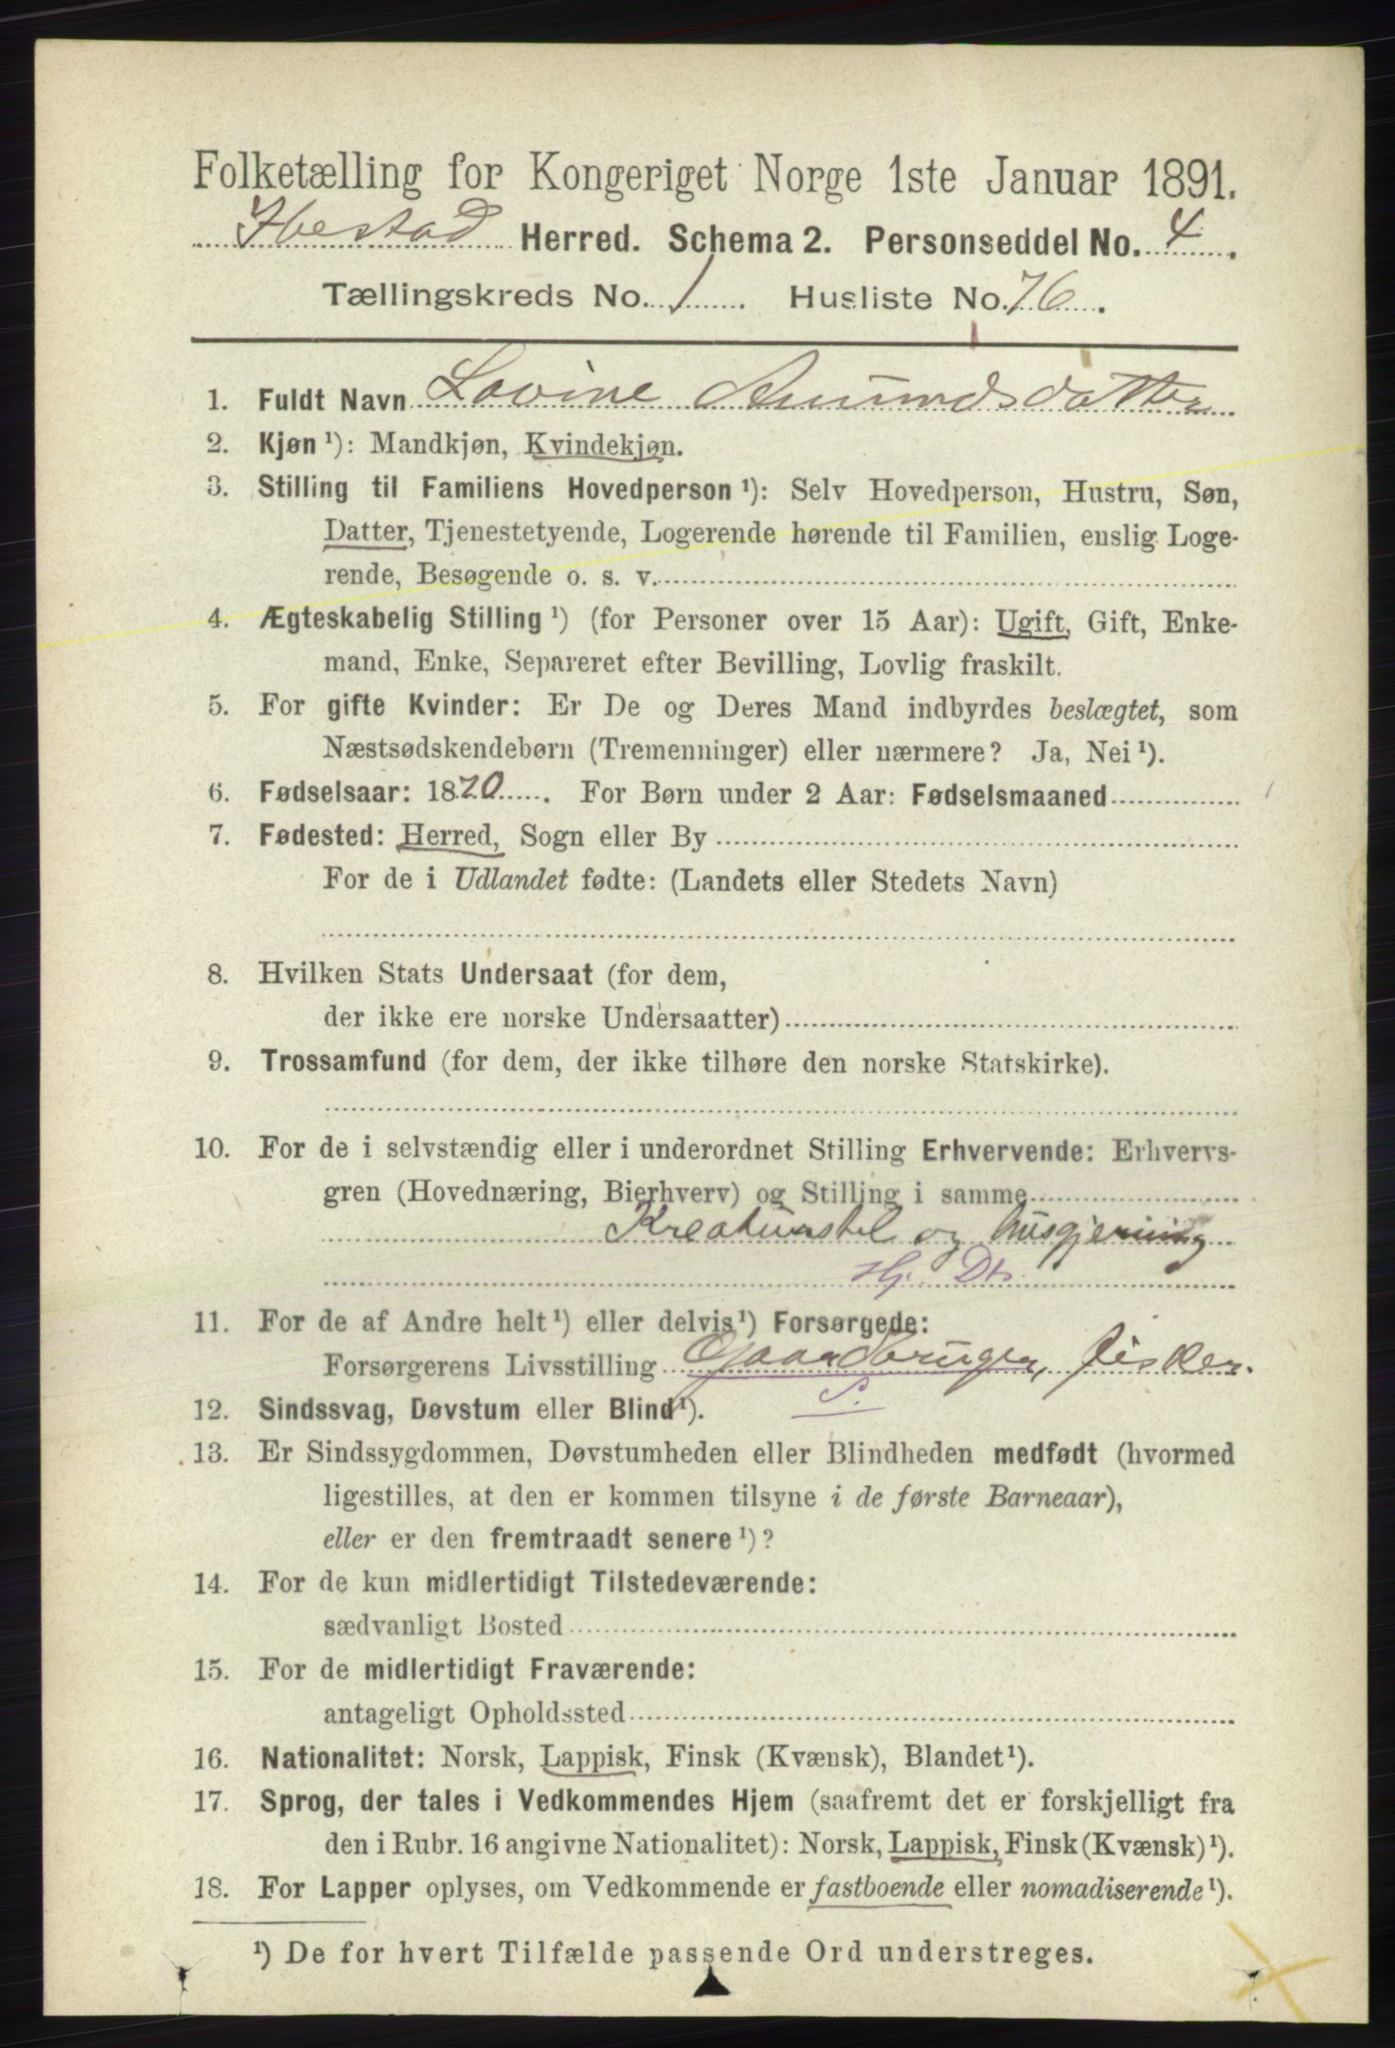 Folketælling for Kongeriget Norge 1ste Januar 1891.
Ibestad Herred. Schema 2. Personseddel No. 4.
Tællingskreds No. 1. Husliste No. 76.
1. Fuldt Navn Lovine Amundsdatter
2. Kjøn ¹): Mandkjøn, Kvindekjøn.
3. Stilling til Familiens Hovedperson ¹): Selv Hovedperson, Hustru, Søn,
Datter, Tjenestetyende, Logerende hørende til Familien, enslig Loge-
rende, Besøgende o. s. v.
4. Ægteskabelig Stilling ¹) (for Personer over 15 Aar): Ugift, Gift, Enke-
mand, Enke, Separeret efter Bevilling, Lovlig fraskilt.
5. For gifte Kvinder: Er De og Deres Mand indbyrdes beslægtet, som
Næstsødskendebørn (Tremenninger) eller nærmere? Ja, Nei ¹).
6. Fødselsaar: 1870. For Børn under 2 Aar: Fødselsmaaned
7. Fødested: Herred, Sogn eller By
For de i Udlandet fødte: (Landets eller Stedets Navn)
8. Hvilken Stats Undersaat (for dem,
der ikke ere norske Undersaatter)
9. Trossamfund (for dem, der ikke tilhøre den norske Statskirke).
10. For de i selvstændig eller i underordnet Stilling Erhvervende: Erhvervs-
gren (Hovednæring, Bierhverv) og Stilling i samme
Kreaturstel og husgjerning
Hj. Dtr
11. For de af Andre helt ¹) eller delvis ¹) Forsørgede:
Forsørgerens Livsstilling Gaardbruger, fisker.
S.
12. Sindssvag, Døvstum eller Blind ¹).
13. Er Sindssygdommen, Døvstumheden eller Blindheden medfødt (hvormed
ligestilles, at den er kommen tilsyne i de første Barneaar),
eller er den fremtraadt senere ¹)?
14. For de kun midlertidigt Tilstedeværende:
sædvanligt Bosted
15. For de midlertidigt Fraværende:
antageligt Opholdssted
16. Nationalitet: Norsk, Lappisk, Finsk (Kvænsk), Blandet ¹).
17. Sprog, der tales i Vedkommendes Hjem (saafremt det er forskjelligt fra
den i Rubr. 16 angivne Nationalitet): Norsk, Lappisk, Finsk (Kvænsk) ¹).
18. For Lapper oplyses, om Vedkommende er fastboende eller nomadiserende ¹).
¹) De for hvert Tilfælde passende Ord understreges.